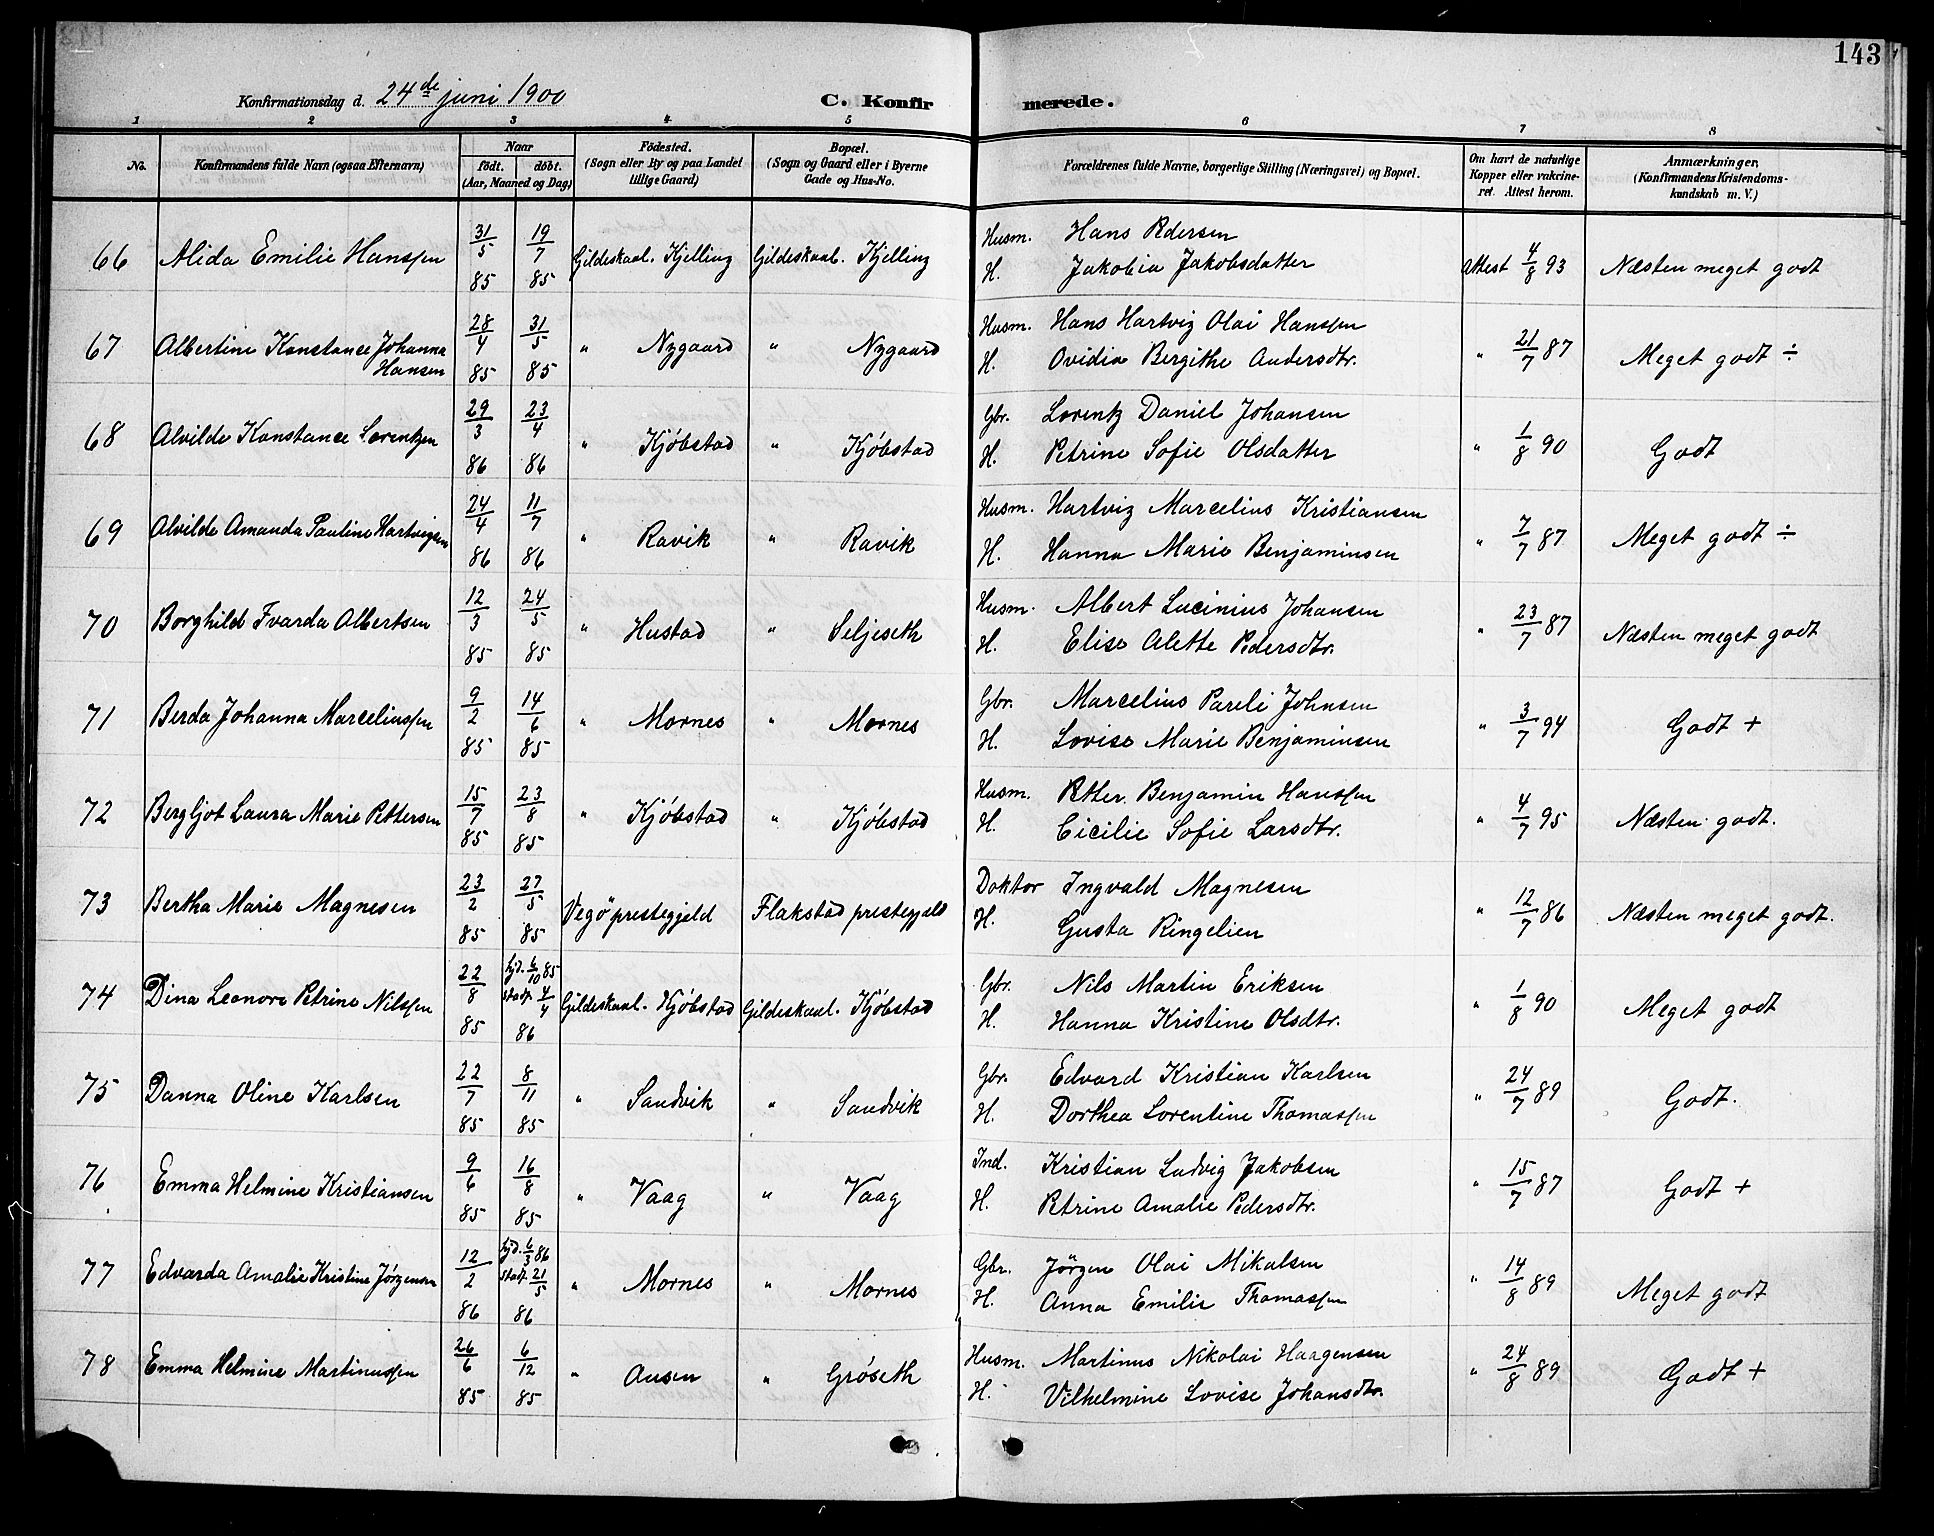 143
Konfirmationsdag d. 24de juni 1900 C. Konfirmerede.
1 2 3 4 5 6 7 8
No. Konfirmandens fulde Navn (ogsaa Efternavn) Naar født. døbt. (Aar, Maaned og Dag) Fødested. (Sogn eller By og paa Landet tillige Gaard) Bopæl. (Sogn og Gaard eller i Byerne Gade og Hus-No. Forældrenes fulde Navne, borgerlige Stilling (Næringsvei) og Bopæl. Om havt de naturlige Kopper eller vakcineret. Attest herom. Anmærkninger, (Konfirmandens Kristendomskundskab m. V.)
66 Alida Emilie Hanssen 31/5 85 19/7 85 Gildeskaal. Kjelling Gildeskaal. Kjelling Husm. Hans Pedersen
H. Jakobia Jakobsdatter Attest 4/8 93 Næsten meget godt
67 Albertine Konstance Johanna Hansen 28/4 85 31/5 85 " Nygaard " Nygaard Husm. Hans Hartvig Olai Hanssen
H. Ovidia Bergithe Andersdtr. " 21/7 87 Meget godt ÷
68 Alvilde Konstance Lorentzen 29/3 86 23/4 86 " Kjøbstad " Kjøbstad Gbr. Lorentz Daniel Johansen
H. Petrine Sofie Olsdatter " 1/8 90 Godt
69 Alvilde Amanda Pauline Hartvigsen 24/4 86 11/7 86 " Ravik " Ravik Husm. Hartvig Marcelius Kristiansen
H. Hanna Marie Benjaminsen " 7/7 87 Meget godt ÷
70 Borghild Fvarda Albertsen 12/3 85 24/5 85 " Hustad " Seljeseth Husm. Albert Lucinius Johansen
H. Elise Alette Pedersdtr. " 23/7 87 Næsten meget godt
71 Berda Johanna Marceliussen 9/2 85 14/6 85 " Mornes " Mornes Gbr. Marcelius Pareli Johnsen
H. Lovise Marie Benjaminsen " 3/7 94 Godt +
72 Bergljot Laura Marie Pettersen 15/7 85 23/8 85 " Kjøbstad " Kjøbstad Husm. Petter Benjamin Hanssen
H. Cicilie Sofie Larsdtr. " 4/7 95 Næsten godt.
73 Bertha Marie Magnesen 23/2 85 27/5 85 Vegø prestegjeld Flakstad prestegjeld Doktor Ingvald Magnesen
H. Gusta Ringelien " 12/7 86 Næsten meget godt.
74 Dina Leonore Petrine Nilssen 22/8 85 hjd. 6/10 85 stadf. 4/4 86 Gildeskaal. Kjøbstad Gildeskaal. Kjøbstad Gbr. Nils Martin Eriksen
H. Hanna Kristine Olsdtr. " 1/8 90 Meget godt
75 Danna Oline Karlsen 22/7 85 8/11 85 " Sandvik " Sandvik Gbr. Edvard Kristian Karlsen
H. Dorthea Lorentine Thomassen " 24/7 89 Godt.
76 Emma Helmine Kristiansen 9/6 85 16/8 85 " Vaag " Vaag Ind. Kristian Ludvig Jakobsen
H. Petrine Amalie Pedersdtr. " 15/7 87 Godt +
77 Edvarda Amalie Kristine Jørgensen 12/2 86 hjd. 6/3 86 stadf. 21/5 86 " Mornes " Mornes Gbr. Jørgen Olai Mikalsen
H. Anna Emilie Thomassen " 14/8 89 Meget godt
78 Emma Helmine Martinussen 26/6 85 6/12 85 " Ausen " Grøseth Husm. Martinus Nikolai Haagensen
H. Vilhelmine Lovise Johansdtr. " 24/8 89 Godt +